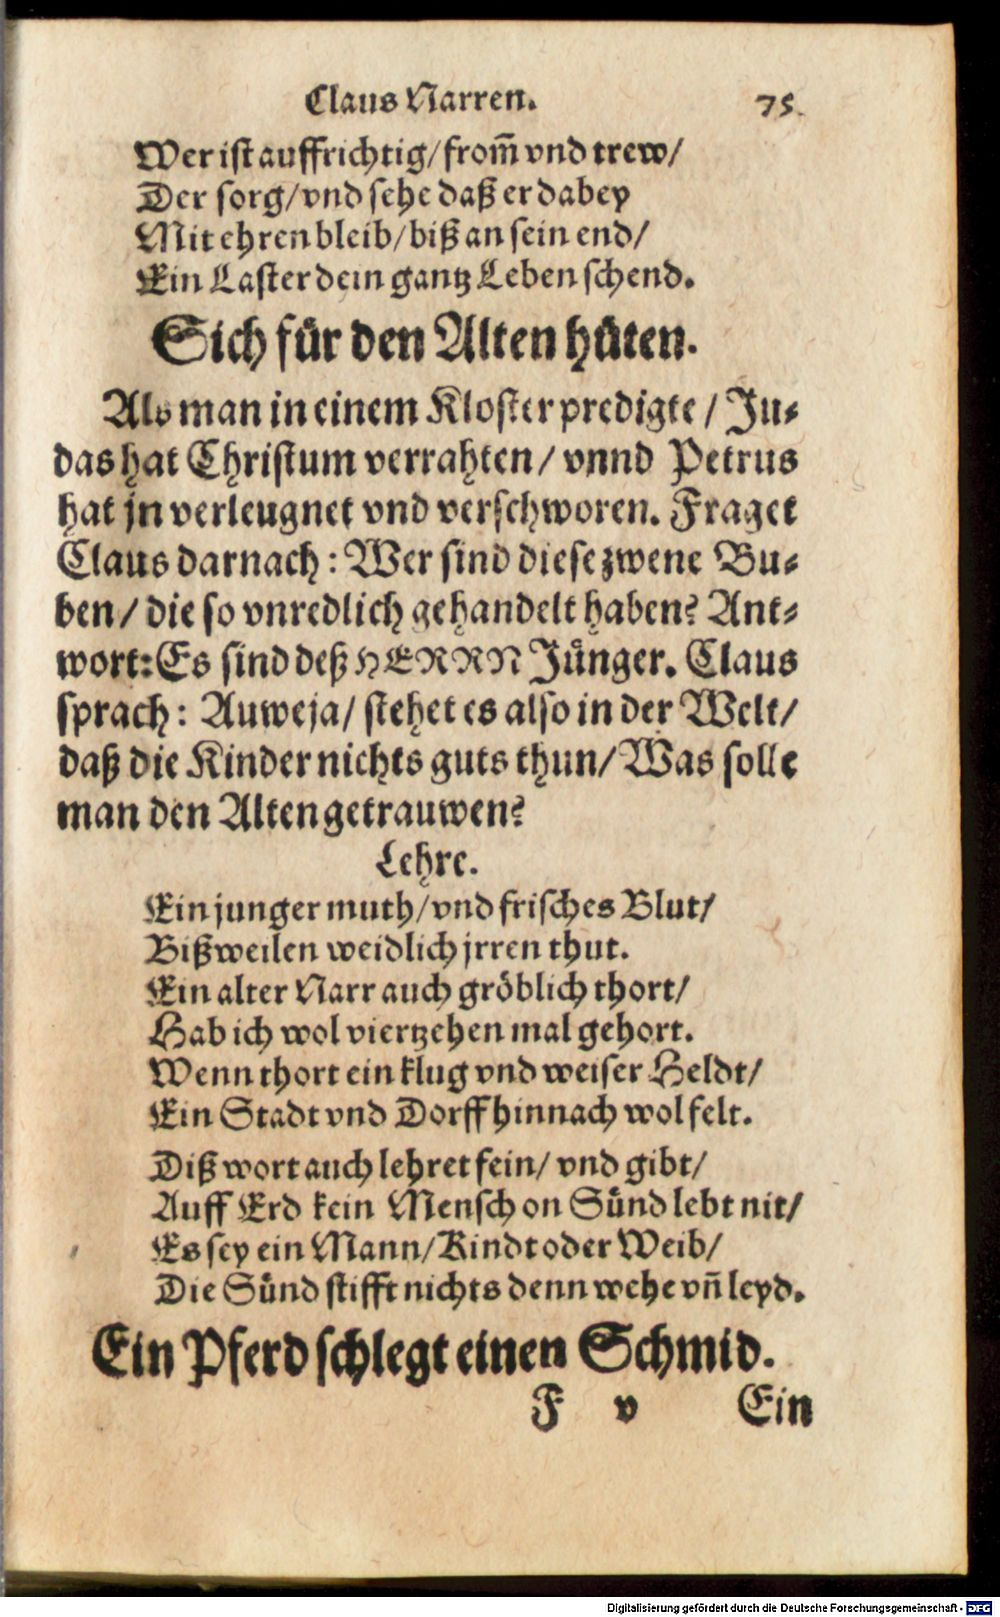 Claus Narren. 75.
Wer ist auffrichtig/ from̃ vnd trew/
Der sorg/ vnd sehe daß er dabey
Mit ehren bleib/ biß an sein end/
Ein Laster dein gantz Leben schend.
Sich für den Alten hüten.
Als man in einem Kloster predigte/ Ju-
das hat Christum verrahten/ vnnd Petrus
hat jn verleugnet vnd verschworen. Fraget
Claus darnach: Wer sind diese zwene Bu-
ben/ die so vnredlich gehandelt haben? Ant-
wort: Es sind deß HERRN Jünger. Claus
sprach: Auweja/ stehet es also in der Welt/
daß die Kinder nichts guts thun/ Was solle
man den Alten getrauwen?
Lehre.
Ein junger muth/ vnd frisches Blut/
Bißweilen weidlich jrren thut.
Ein alter Narr auch gröblich thort/
Hab ich wol viertzehen mal gehort.
Wenn thort ein klug vnd weiser Heldt/
Ein Stadt vnd Dorff hinnach wol felt.
Diß wort auch lehret fein/ vnd gibt/
Auff Erd kein Mensch on Sünd lebt nit/
Es sey ein Mann/ Kindt oder Weib/
Die Sünd stifft nichts denn wehe vñ leyd.
Ein Pferd schlegt einen Schmid.
F v Ein
Digitalisierung gefördert durch die Deutsche Forschungsgemeinschaft - DFG